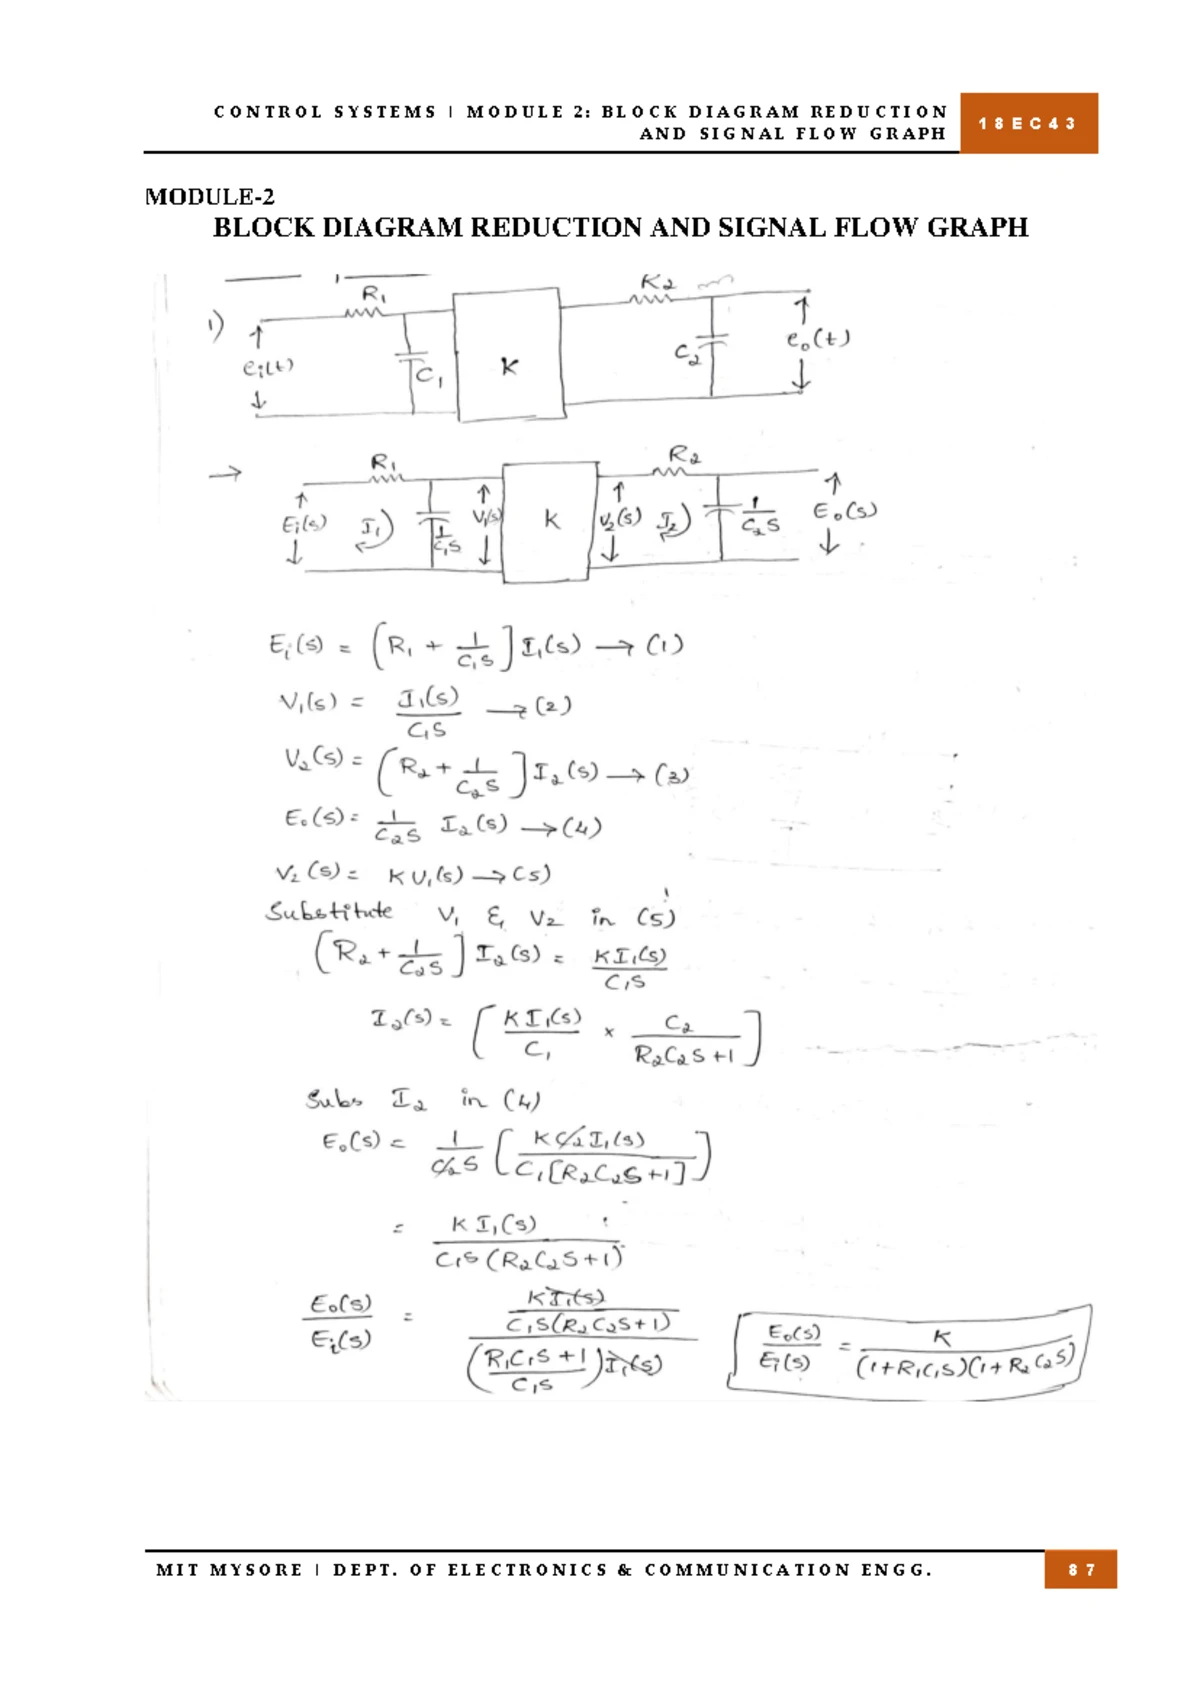 CONTROL SYSTEMS | MODULE 2: BLOCK DIAGRAM REDUCTION
AND SIGNAL FLOW GRAPH
18EC43
MODULE-2
BLOCK DIAGRAM REDUCTION AND SIGNAL FLOW GRAPH
1) ei(t) R1 C1 K R2 C2 eo(t)
→ Ei(s) R1 I1 1/C1S V1(s) K V2(s) R2 I2 1/C2S Eo(s)
Ei(s) = (R1 + 1/C1S] I1(s) → (1)
V1(s) = I1(s)/C1S → (2)
V2(s) = (R2 + 1/C2S] I2(s) → (3)
Eo(s) = 1/C2S I2(s) → (4)
V2(s) = K V1(s) → (5)
Substitute V1 & V2 in (5)
(R2 + 1/C2S] I2(s) = KI1(s)/C1S
I2(s) = [KI1(s)/C1 × C2/R2C2S+1]
Subs I2 in (4)
Eo(s) = 1/C2S [KC2I1(s)/C1[R2C2S+1]]
= KI1(s)/C1S(R2C2S+1)
Eo(s)/Ei(s) = KI1(s)/C1S(R2C2S+1) / (R1C1S+1/C1S)I1(s)
Eo(s)/Ei(s) = K/(1+R1C1S)(1+R2C2S)
MIT MYSORE | DEPT. OF ELECTRONICS & COMMUNICATION ENGG.
87